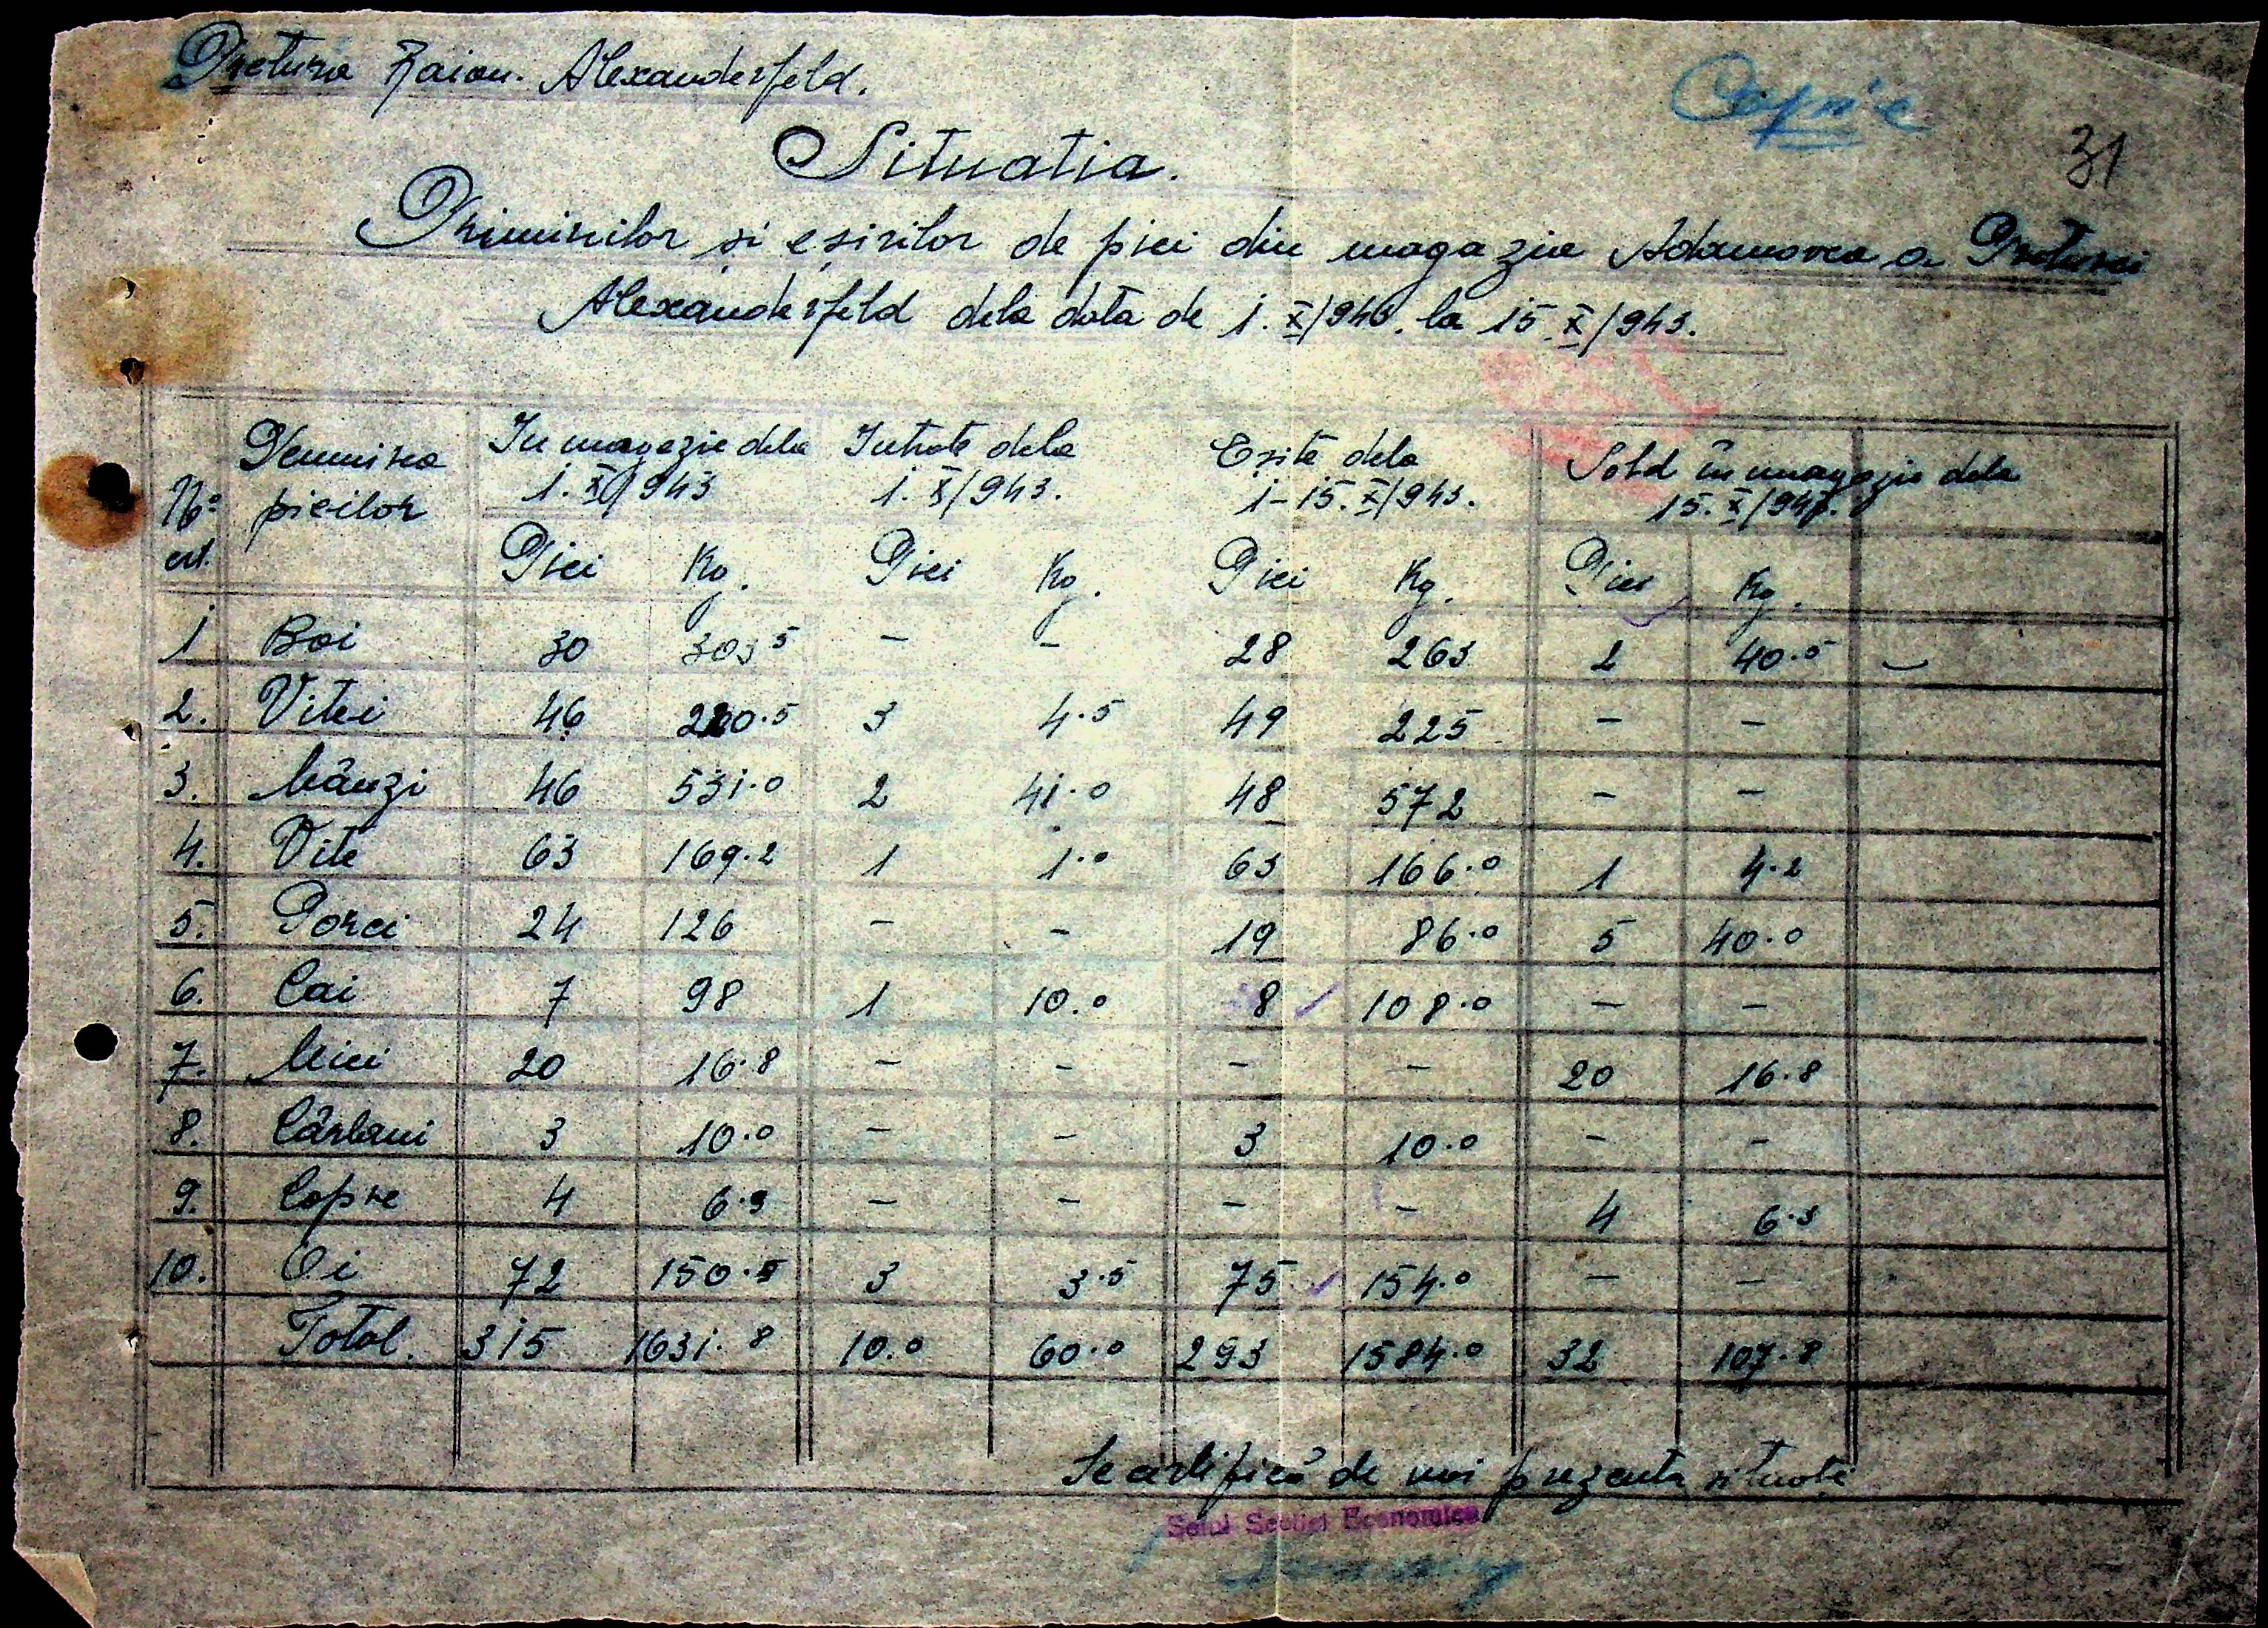 Pretura Raion. Alexanderfeld.
Copie
31
Situatia.
Primirilor și eșirilor de piei din magazia Adamovca a Preturei
Alexanderfeld dela data de 1. X/943. la 15. X/943.
No. crt. Denumirea pieilor In magazie dela 1. X/943 Intrate dela 1. X/943. Esite dela 1-15. X/943. Sold în magazie dela 15. X/943.
Piei Kg. Piei Kg. Piei Kg. Piei Kg.
1 Boi 30 303 5 - - 28 263 2 40.5
2. Vitei 46 220.5 3 4.5 49 225 - -
3. Mânzi 46 531.0 2 41.0 48 572 - -
4. Vite 63 169.2 1 1.0 63 166.0 1 4.2
5. Porci 24 126 - - 19 86.0 5 40.0
6. Cai 7 98 1 10.0 8 108.0 - -
7. Miei 20 16.8 - - - - 20 16.8
8. Cârlani 3 10.0 - - 3 10.0 - -
9. Capre 4 6.3 - - - - 4 6.3
10. Oi 72 150.5 3 3.5 75 154.0 - -
Total. 315 1631.8 10.0 60.0 293 1584.0 32 107.8
Se certifică de noi prezenta situatie
Seful Sectiei Economice